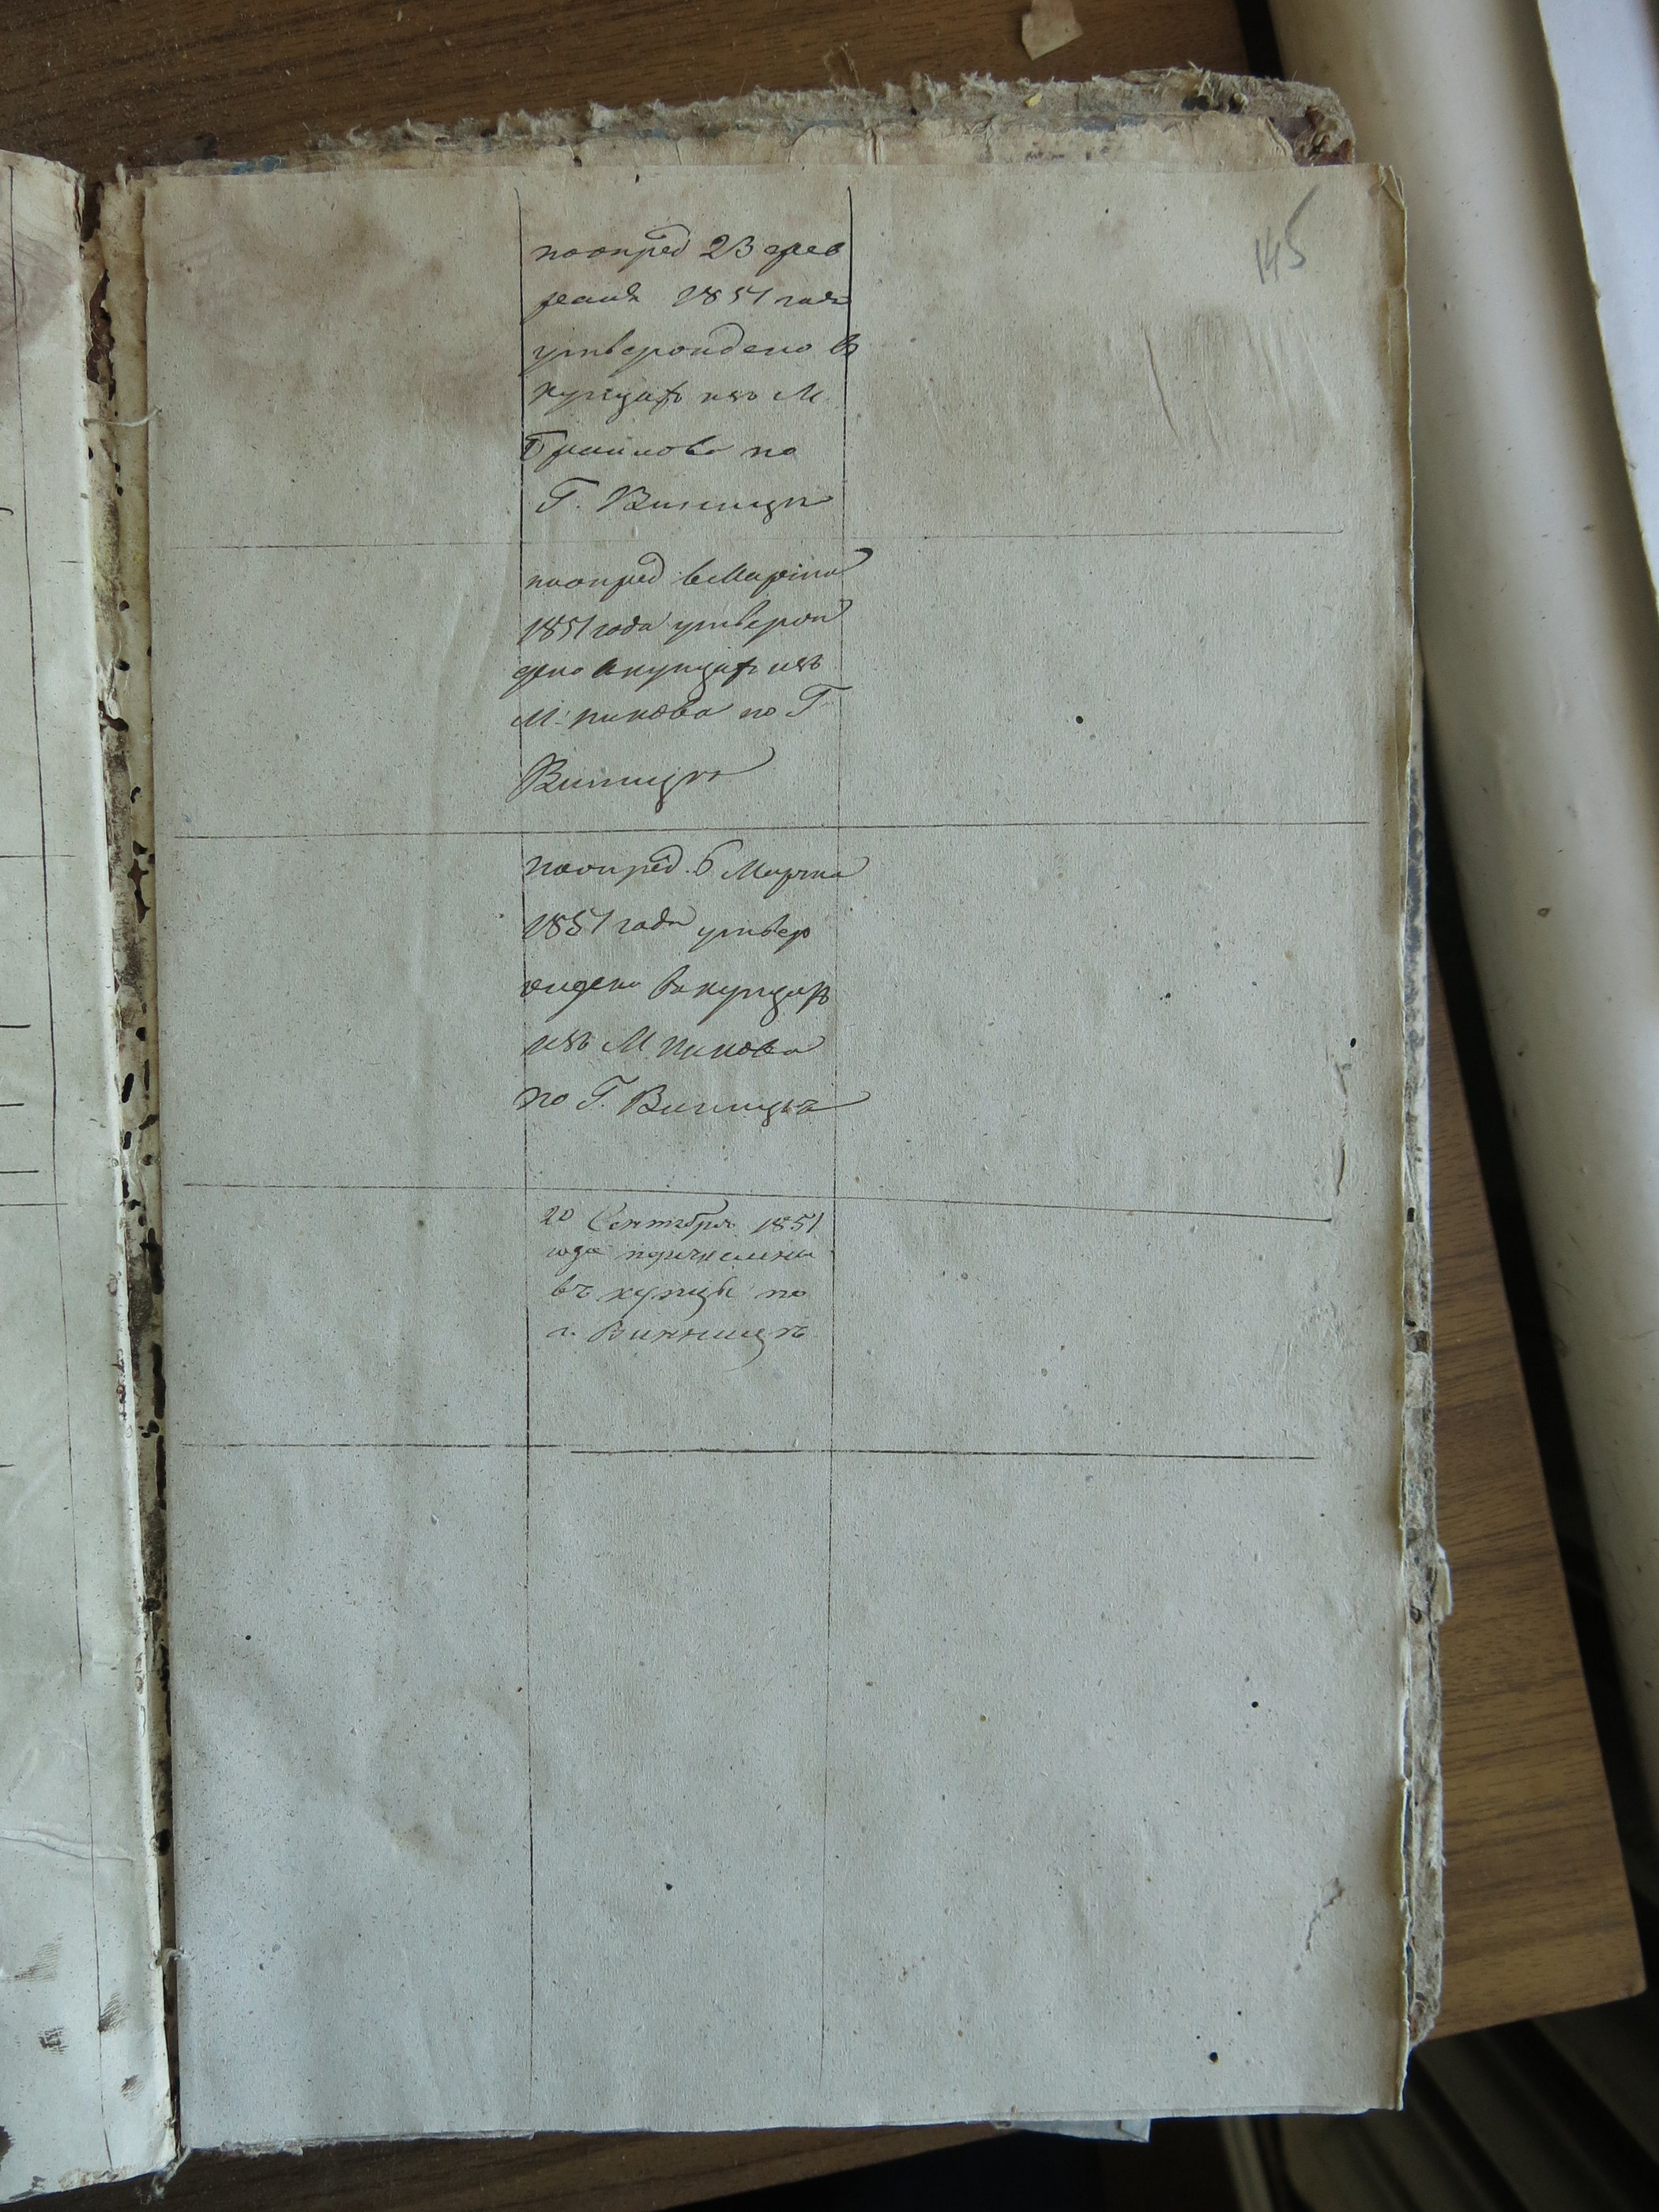 145
поопред 23 фев
раля 1851 года
утверждено в
купцахъ изъ М.
Браилова по
Г. Виницы
поопред 6 Марта
1851 года утверж
дено вкупцахъ изъ
М. пикова по Г
Виницы
поопред. 6 Марта
1851 года утвер
ждено вкупцахъ
изъ М. пикова
по Г. Виницы
20 Сентября 1851
года перечислены
въ купцы по
г. Винницѣ